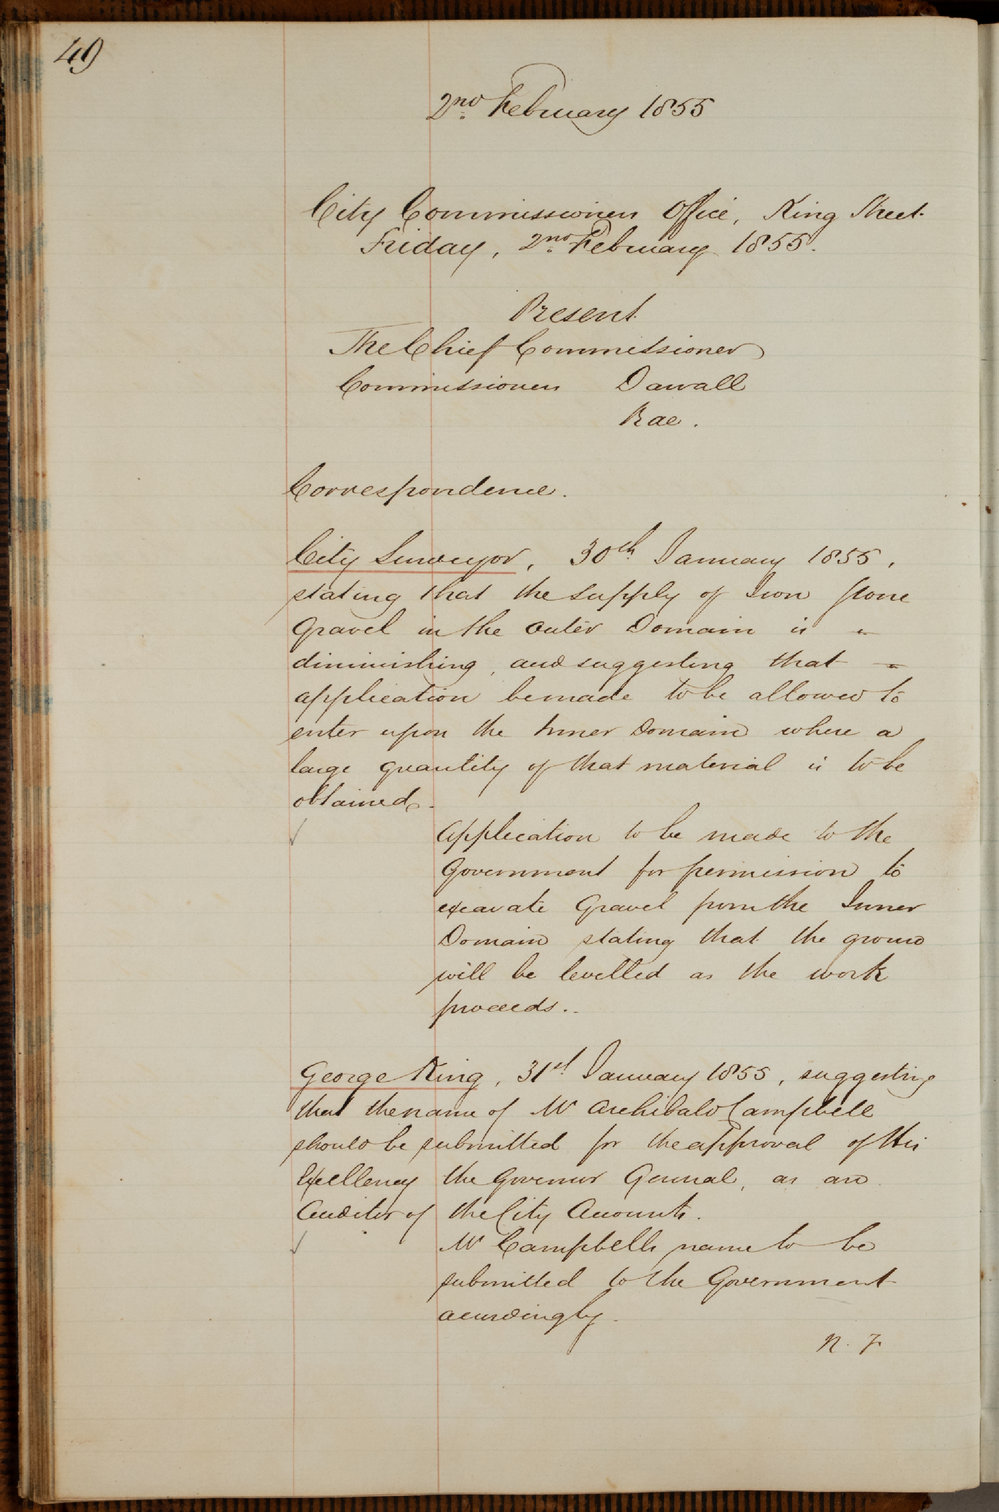 49
2nd February 1855
City Commissioners Office, King Street.
Friday, 2nd February 1855.
Present
The Chief Commissioner
Commissioners Darvall
Rae.
Correspondence.
City Surveyor, 30th January 1855,
stating that the supply of Iron Stone
Gravel in the Outer Domain is
diminishing, and suggesting that
application be made to be allowed to
enter upon the Inner Domain where a
large quantity of that material is to be
obtained.
Application to be made to the
Government for permission to
excavate Gravel from the Inner
Domain stating that the ground
will be levelled as the work
proceeds..
George King, 31st January 1855, suggesting
that the name of Mr Archibald Campbell
should be submitted for the approval of His
Excellency the Governor General, as an
Auditor of the City Accounts.
Mr Campbells name to be
submitted to the Government
accordingly.